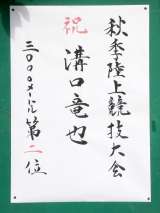 秋季陸上競技大会
祝 溝口竜也
三〇〇〇メートル第二位